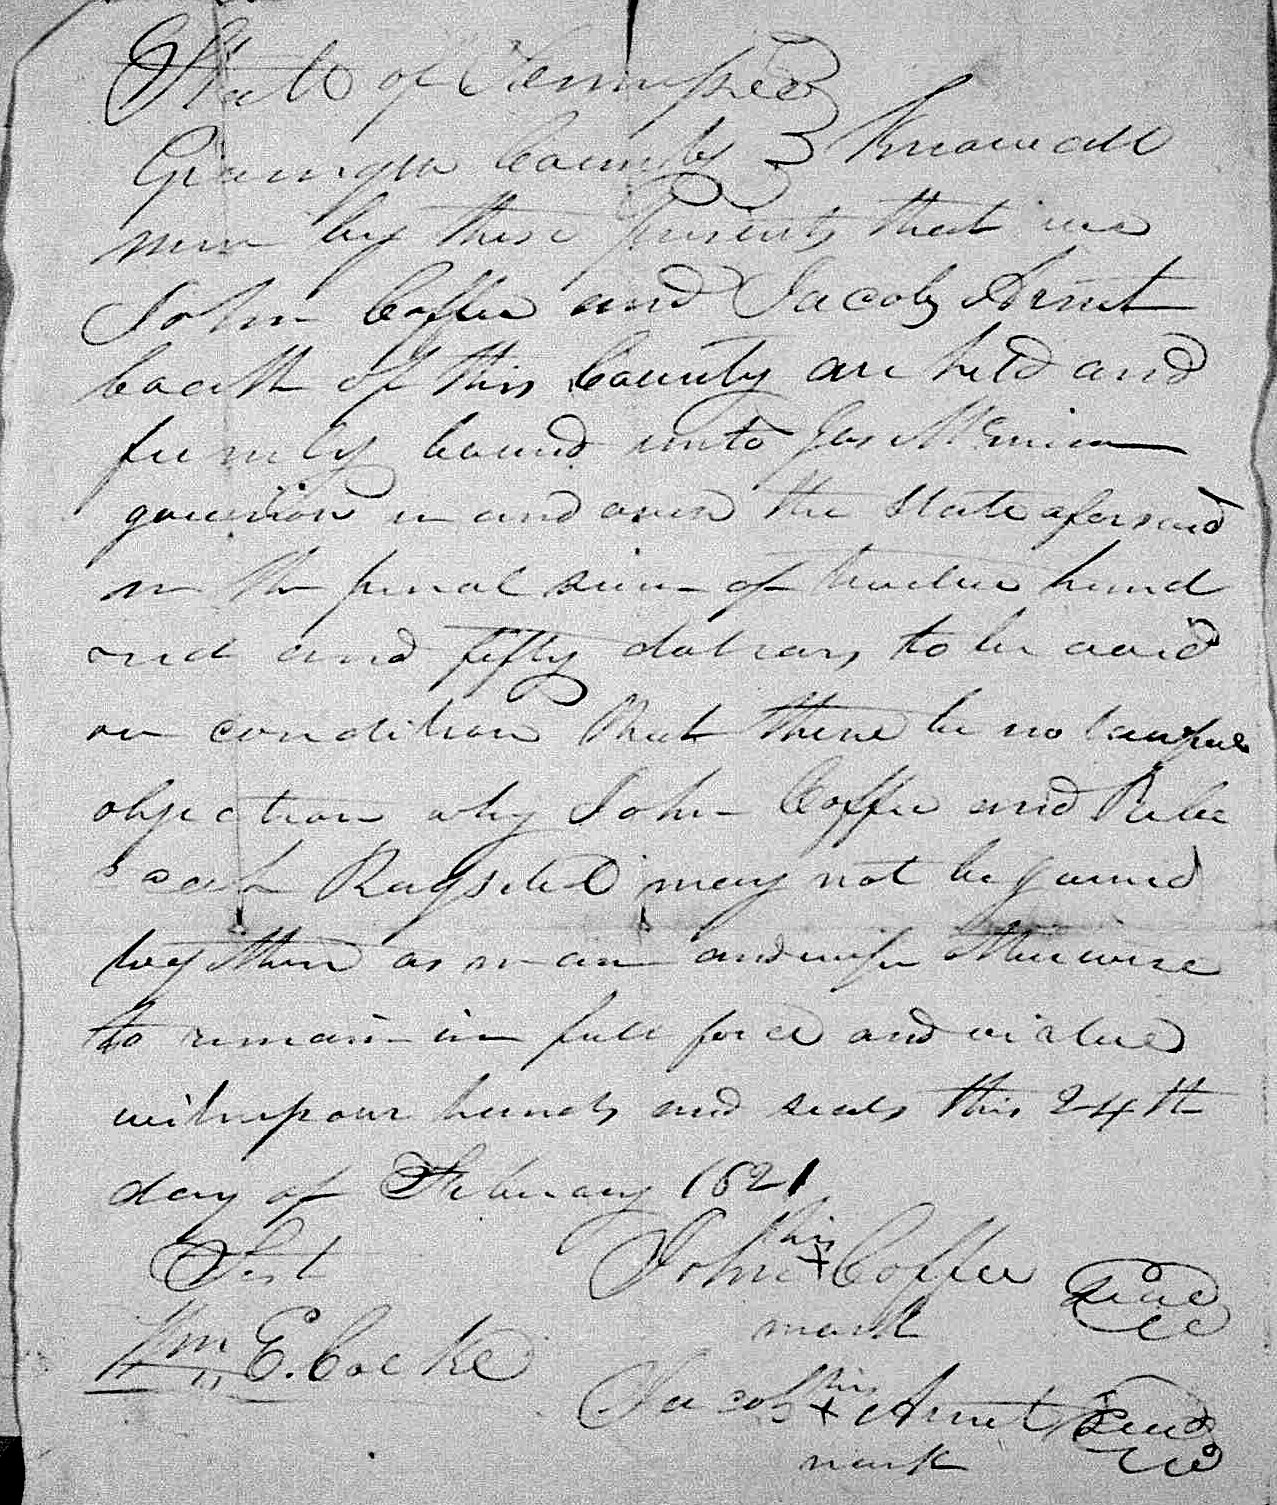 State of Tennessee
Grainger County } Know all
men by these presents that we
John Coffee and Jacob Arnet
boath of this County are held and
firmly bound unto Jos McMinn
govenor in and over the State aforsaid
in the penal sum of twelve hund
red and fifty dolears to be void
on condition that there be no lawful
objection why John Coffee and Rebe
cah Ragsdel may not be joined
together as man and wife otherwise
to remain in full force and virtue
witness our hands and seals this 24th
day of February 1821
Test
his
John + Coffee seal
mark
Wm E. Cocke
his
Jacob + Arnet seal
mark